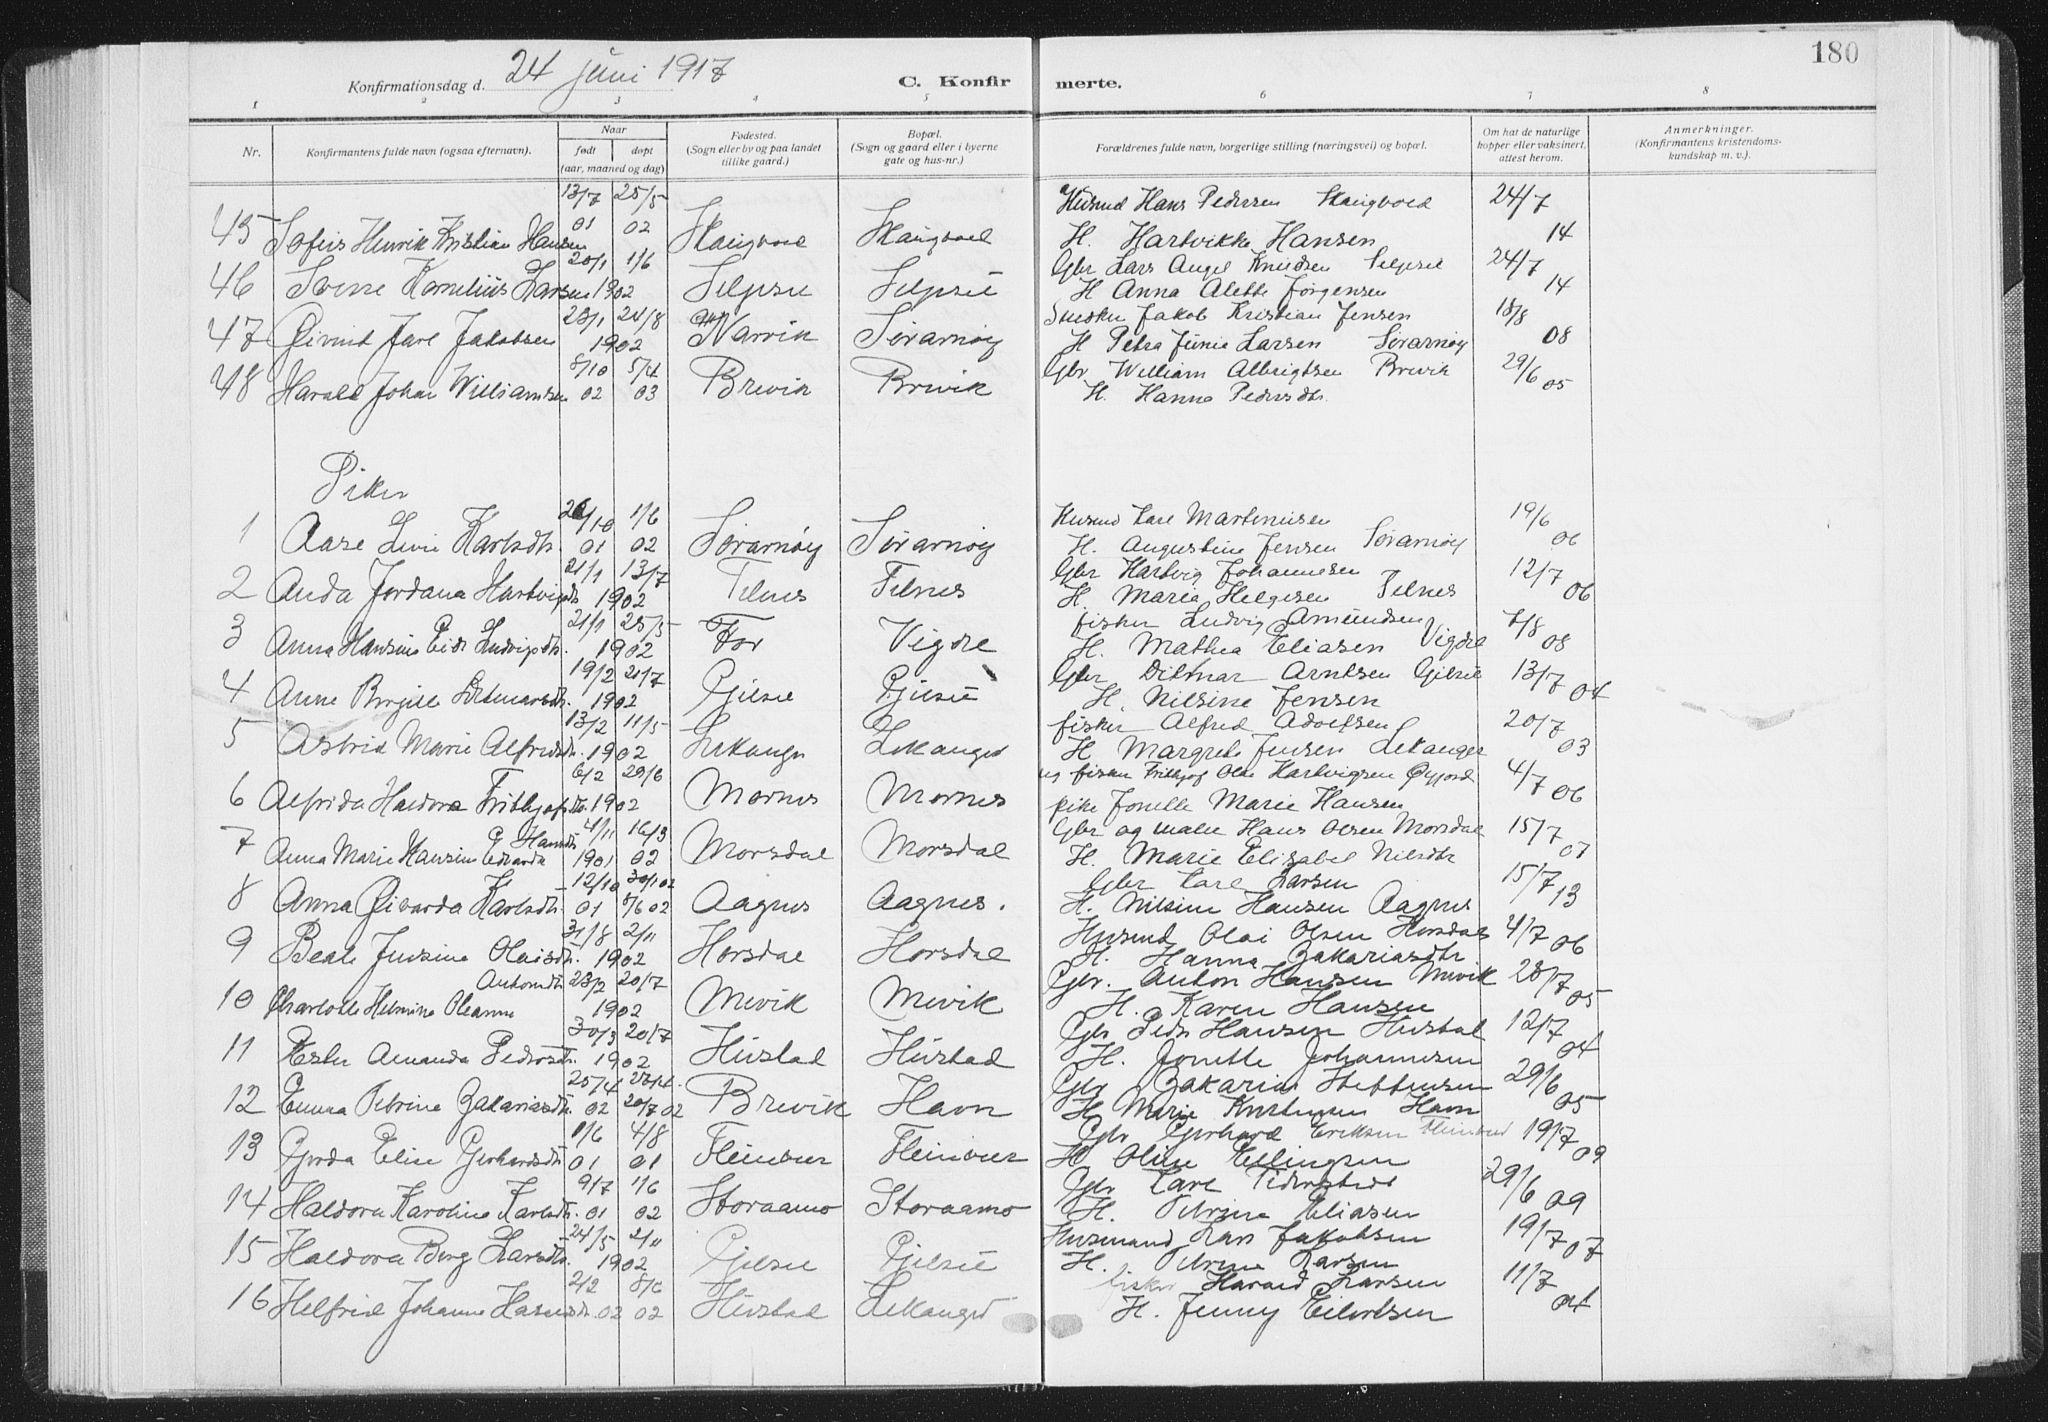 180
Konfirmationsdag d. 24 juni 1917 C. Konfirmerte.
1 2 3 4 5 6 7 8
Nr. Konfirmantens fulde navn (ogsaa efternavn). Naar født døpt (aar, maaned og dag) Fødested. (Sogn eller by og paa landet tillike gaard.) Bopæl. (Sogn og gaard eller i byerne gate og hus-nr.) Forældrenes fulde navn, borgerlige stilling (næringsvei) og bopæl. Om hat de naturlige kopper eller vaksinert, attest herom. Anmerkninger. (Konfirmantens kristendomskundskap m. v.).
45 Sofus Henrik Kristian Hansen 13/7 01 25/5 02 Skaugvoll Skaugvoll Husmd Hans Pedersen Skaugvold 24/7 14
H. Hartvikke Hansen
46 Sverre Kornelius Larsen 20/1 1/6 1902 Selpsu Selpsu Gbr Lars Angel Knudsen Selpsu 24/7 14
H Anna Alette Jørgensen
47 Øivind Jarl Jakobsen 23/1 24/8 1902 Narvik Sørarnøy Snedker Jakob Kristian Jensen 18/8 08
H Petra Junie Larsen Sørarnøy
48 Harald Johan Williamsen 8/10 02 5/4 03 Brevik Brevik Gbr. William Albrigtsen Brevik 29/6 05
H. Hanna Pedersdtr.
Piker
1 Aase Livie Karlsdtr. 26/10 01 1/6 02 Sørarnøy Sørarnøy Husmd Karl Martinusen 19/6 06
H. Augustine Jensen Sørarnøy
2 Anda Jordana Hartvigsdtr 21/1 13/7 1902 Selnes Selnes Gbr Hartvig Johannesen 12/7 06
H. Maria Helgesen Selnes
3 Anna Hansine Eidi Ludvigsdtr. 21/1 25/5 1902 For Vigdel fisker Ludvig Amundsen 7/8 08
H. Mathea Eliasen Vigdel
4 Anne Birgitte Ditmarsdtr. 19/2 21/7 1902 Gjelsu Gjelsu Gbr Ditmar Arntsen Gjelsu 13/7 04
H. Nilsine Jensen
5 Astrid Marie Alfredsdtr. 13/2 11/5 1902 Lekanger Lekanger fisker Alfred Adolfsen 20/7 03
H Margrete Jensen Lekanger
6 Alfrida Haldora Frithjofsdtr. 6/2 29/6 1902 Mornes Mornes fisker Frithjof Olai Hartvigsen 4/7 06
pike Jonette Marie Hansen
7 Anna Marie Hansine Edvarda Hansdtr 4/11 1901 16/3 02 Morsdal Morsdal Gbr og maler Hans Olsen Morsdal 15/7 07
H. Marie Elisabet Nilsdtr
8 Anna Edvarda Karlsdtr. 12/10 01 30/1 02 8/6 02 Aagnes Aagnes. Gbr Karl Larsen 15/7 13
H. Nilsine Hansen Aagnes
9 Beate Jensine Olaisdtr. 31/8 2/11 1902 Horsdal Horsdal Husmd Olai Olsen Horsdal 4/7 06
H. Hanna Zakariasdtr
10 Charlotte Helmine Oleanna Antonsdtr 23/2 20/7 1902 Mevik Mevik Gbr. Anton Hansen Mevik 28/7 05
H. Karen Hansen
11 Ester Amanda Pedersdtr. 30/3 20/7 1902 Hustad Hustad Gbr Peder Hansen Hustad 12/7 04
H. Jonette Johannesen
12 Emma Petrine Zakariasdtr. 25/4 02 20/7 02 Brevik Havn Gbr Zakarias Steffensen 29/6 05
H Marie Kristensen Havn
13 Gjerda Elise Gerhardsdtr 1/6 01 4/8 01 Fleinvær Fleinvær Gbr Gerhard Eriksen Fleinvær 19/7 09
H Oline Ellingsen
14 Haldora Karoline Karlsdtr. 9/7 01 1/6 02 Storaamo Storaamo Gbr Karl Pedersen 29/6 09
H. Petrine Eliasen
15 Haldora Berg Larsdtr. 24/5 2/11 1902 Gjelsu Gjelsu Husmand Lars Jakobsen 19/7 07
H. Petrine Larsen
16 Helfrid Johanne Haraldsdtr. 2/2 02 8/6 02 Hustad Lekanger fisker Harald Larsen 11/7 04
H. Jenny Eilertsen